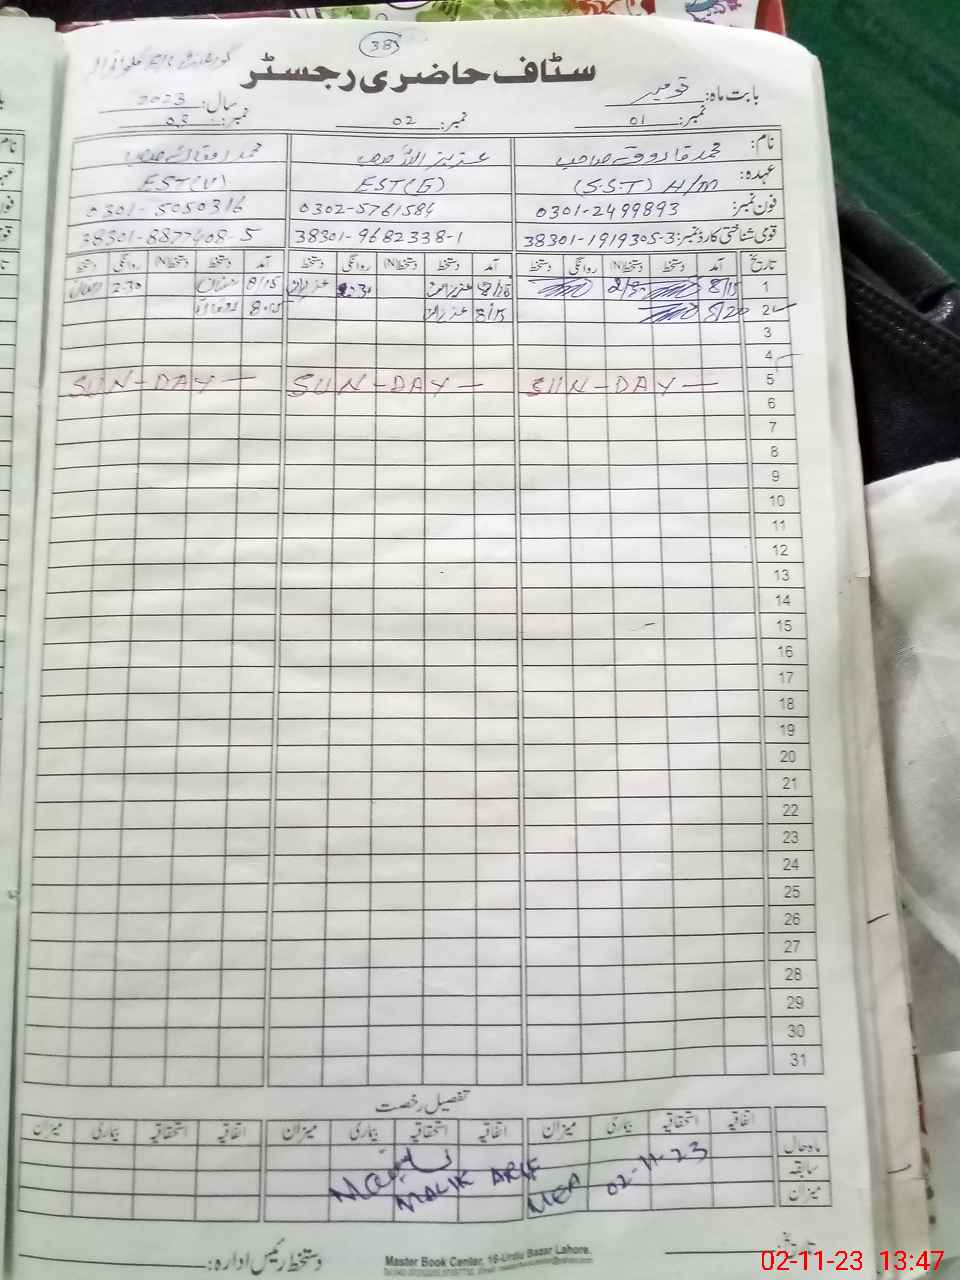 38
سٹاف حاضری رجسٹر
بابت ماہ: نومبر سال: 2023
نمبر: 01 نمبر: 02 نمبر: 03
نام: محمد فاروق صاحب عزیز اللہ صاحب محمد رمضان صاحب
عہدہ: (S.S.T) H/M EST(G) EST(U)
فون نمبر: 0301-2499893 0302-5761584 0301-5050316
قومی شناختی کارڈ نمبر: 38301-1919305-3 38301-9682338-1 38301-8877408-5
تاریخ آمد دستخط دستخط(N) روانگی دستخط آمد دستخط دستخط(N) روانگی دستخط آمد دستخط دستخط(N) روانگی دستخط
1 8/15 2:30 8/15 2:30
2 8/20 8/15 8:15
3
4
5 SUN-DAY- SUN-DAY- SUN-DAY-
6
7
8
9
10
11
12
13
14
15
16
17
18
19
20
21
22
23
24
25
26
27
28
29
30
31
تفصیل رخصت
اتفاقیہ استحقاقیہ بیماری میزان اتفاقیہ استحقاقیہ بیماری میزان اتفاقیہ استحقاقیہ بیماری میزان
ماہ حال
سابقہ
میزان
MALIK ARIF MEA 02-11-23
تاریخ: دستخط رئیس ادارہ:
Master Book Center, 16-Urdu Bazar Lahore.
02-11-23 13:47